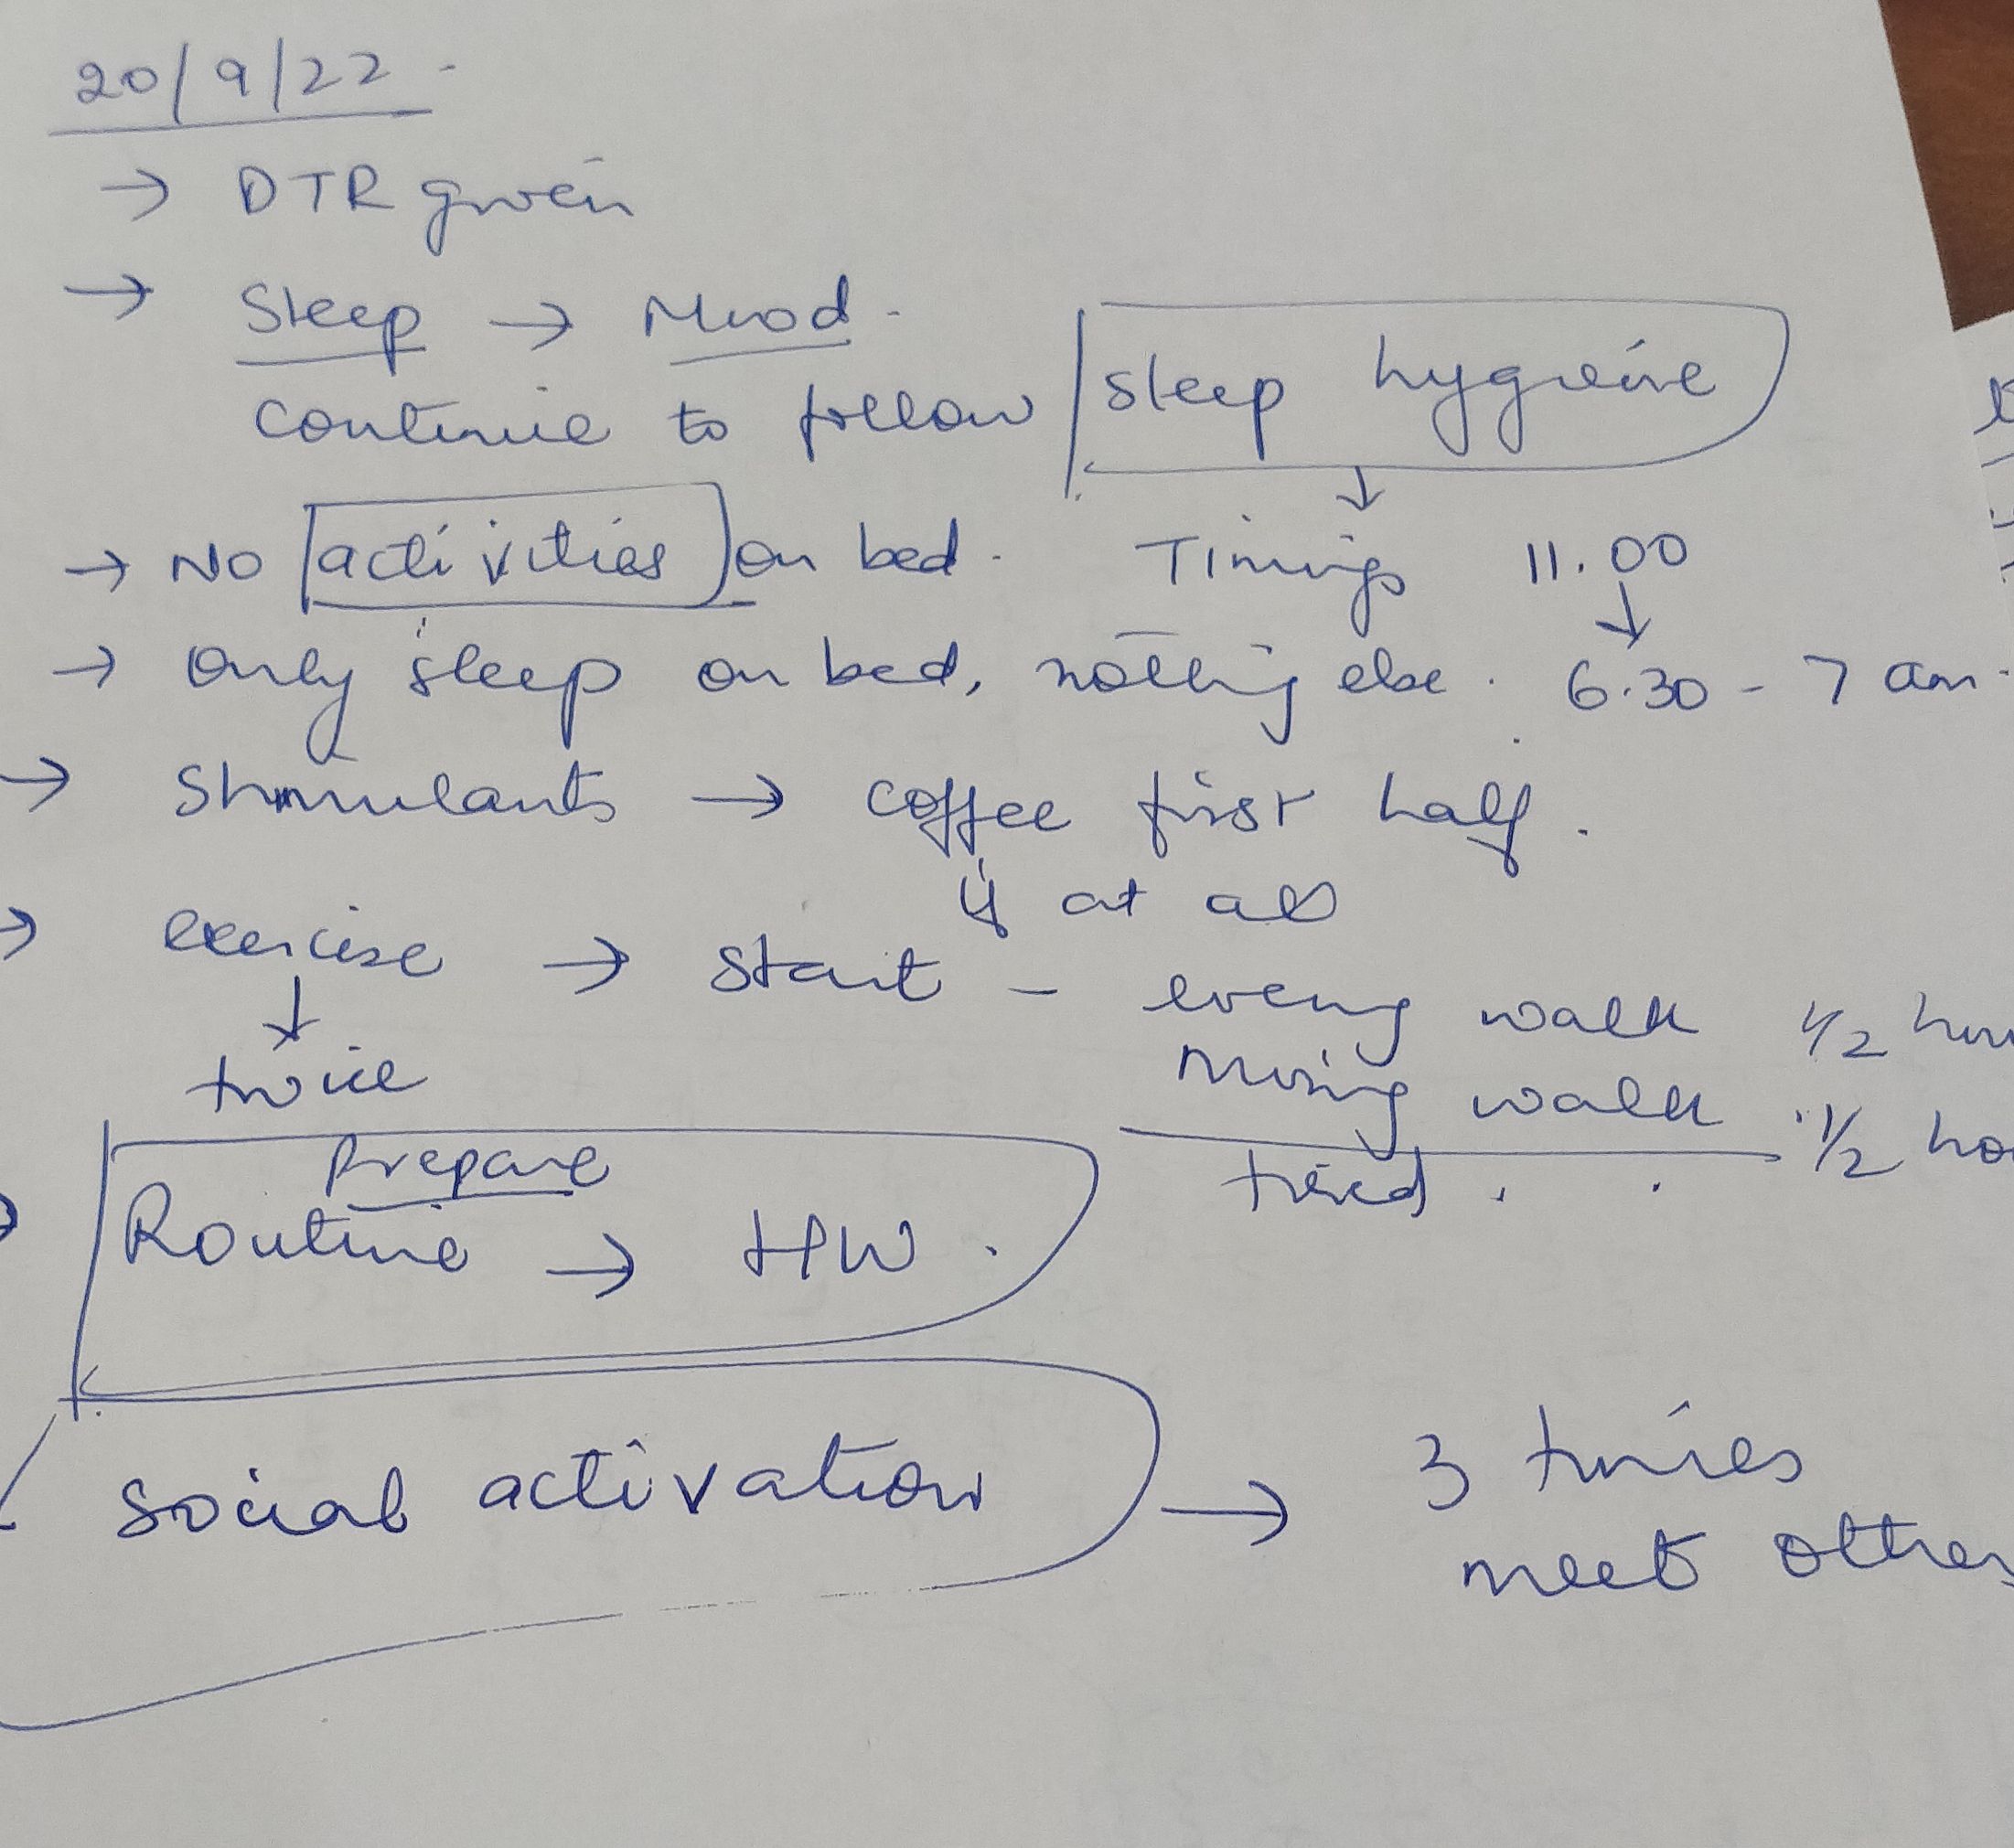 20/9/22
→ DTR given
→ Sleep → Mood.
continue to follow sleep hygeine
→ No activities on bed. Timings 11.00
↓
→ Only sleep on bed, nothing else. 6.30 - 7 am.
→ Stimulants → coffee first half.
if at all
→ exercise → start - evening walk 1/2 hour
↓
twice
morning walk 1/2 ho
tired.
Prepare
Routine → HW.
social activation → 3 times
meet others